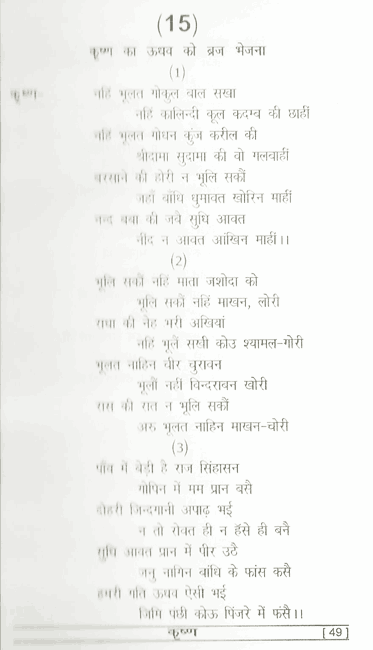 (15)
कृष्ण का ऊधव को ब्रज भेजना
(1)
कृष्ण नहिं भूलत गोकुल बाल सखा
नहिं कालिन्दी कूल कदम्ब की छाहीं
नहिं भूलत गोधन कुंज करील की
श्रीदामा सुदामा की वो गलबाहीं
बरसाने की होरी न भूलि सकौं
जहाँ बांधि घुमावत खोरिन माहीं
नन्द बबा की जबै सुधि आवत
नींद न आवत आंखिन माहीं।।
(2)
भूलि सकौं नहिं माता जशोदा को
भूलि सकौं नहिं माखन, लोरी
राधा की नेह भरी अखियां
नहिं भूलें सखी कोउ श्यामल-गोरी
भूलत नाहिन चीर चुरावन
भूलौं नहीं विन्दरावन खोरी
रास की रात न भूलि सकौं
अरु भूलत नाहिन माखन-चोरी
(3)
पाँव में बेड़ी है राज सिंहासन
गोपिन में मम प्रान बसै
दोहरी जिन्दगानी अपाढ़ भई
न तो रोवत ही न हँसे ही बनै
सुधि आवत प्रान में पीर उठै
जनु नागिन बांधि के फांस कसै
हमरी गति ऊधव ऐसी भई
जिमि पंछी कोऊ पिंजरे में फंसै।।
कृष्ण [ 49 ]